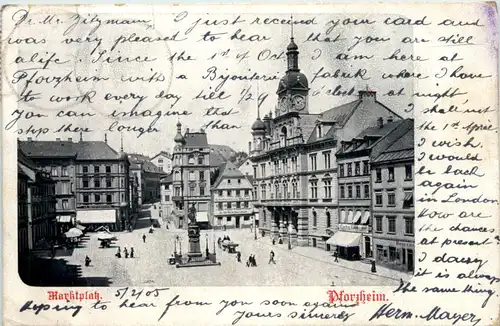 Dr. Mr. Zitzman, I just received your card and
was very pleased to hear, that you are still
alife. Since the 1st of Oct. I am here at
Pforzheim with a Bijouterie fabrik where I have
to work every day till ½9 at night. I
ship there longer than
shall not
the 1st April
I wish, I
would be
back
again in
How are
the chances
at present?
I daresay
it is always
the same thing.
Marktplatz. 5/2/05 Pforzheim.
Hoping to hear from you soon again
Yours sincerely Herm. Mayer,